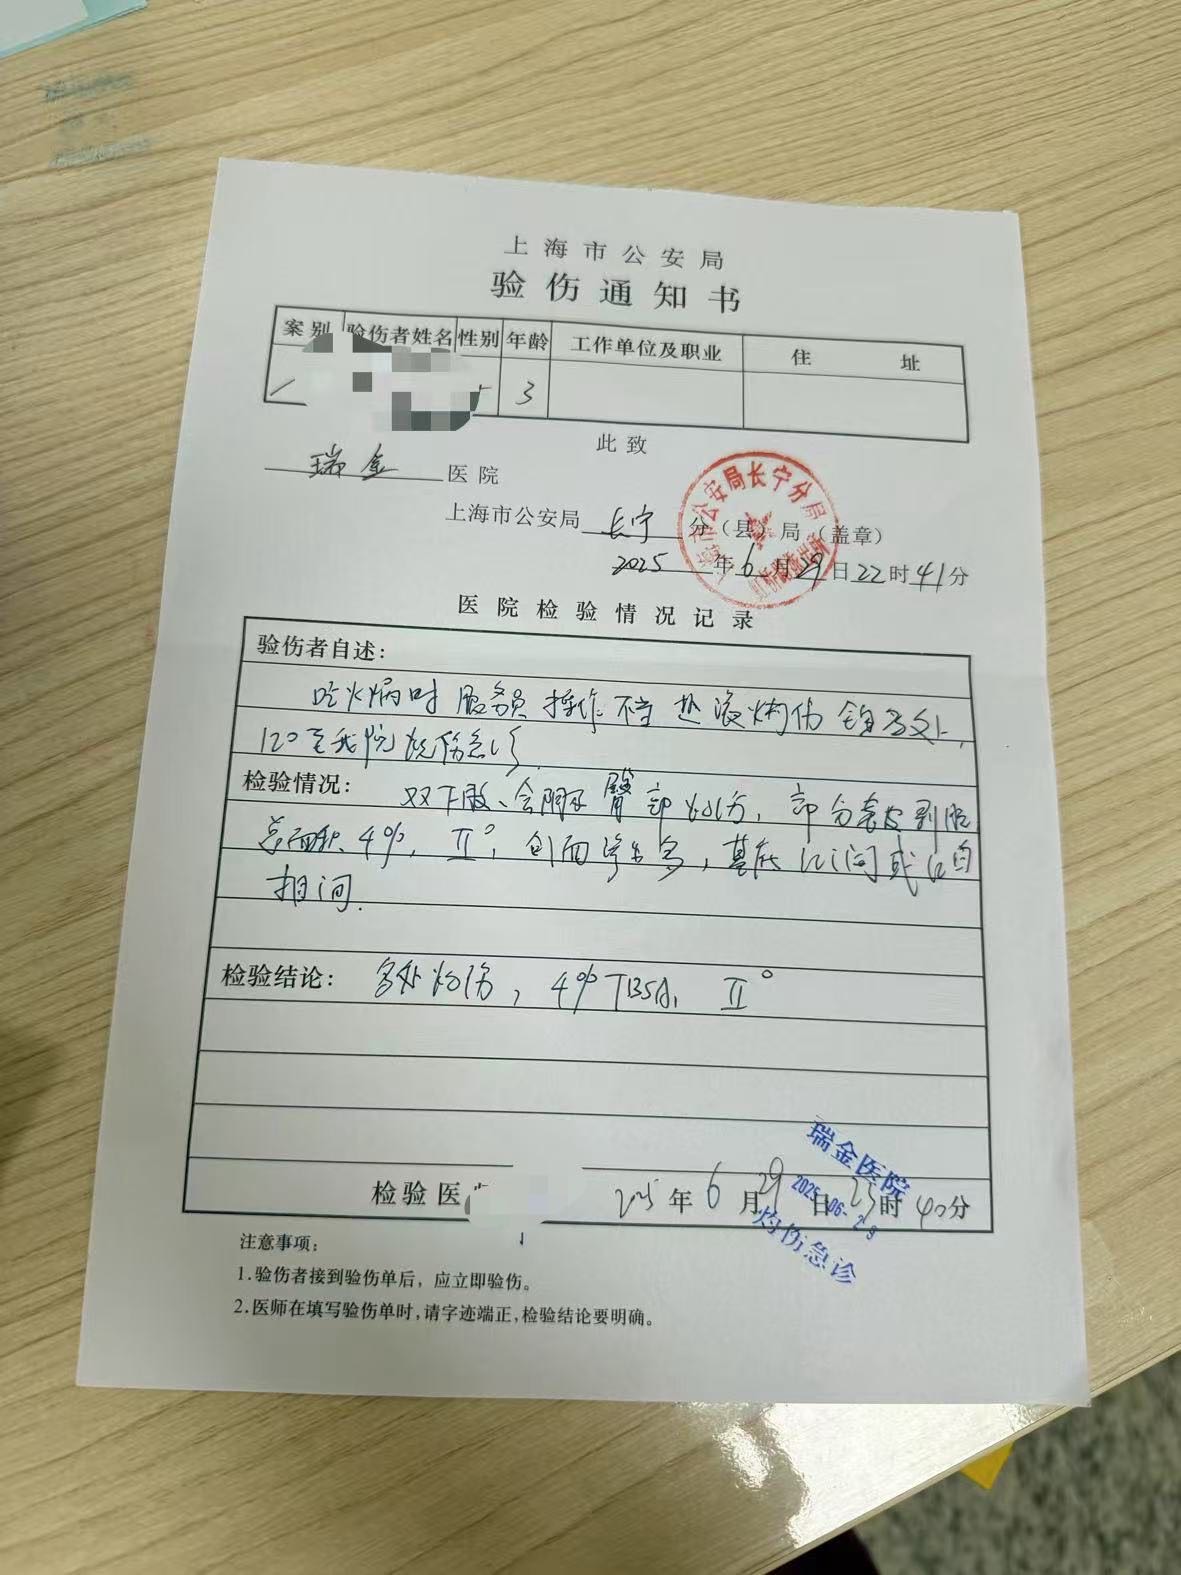 上海市公安局
验伤通知书
案别 验伤者姓名 性别 年龄 工作单位及职业 住址
3
此致
瑞金 医院
上海市公安局 长宁 分(县)局(盖章)
2025年6月29日22时41分
医院检验情况记录
验伤者自述:
吃火锅时服务员操作不当 热液烧伤全身多处,
120至我院烧伤急诊.
检验情况: 双下肢、会阴及臀部灼伤, 部分表皮剥脱
总面积4%, II°, 创面渗出多, 基底 或红白
相间.
检验结论: 多处灼伤, 4%TBSA, II°
检验医
2025年6月29日23时40分
瑞金医院
2025-06-29
灼伤急诊
注意事项:
1.验伤者接到验伤单后，应立即验伤。
2.医师在填写验伤单时,请字迹端正,检验结论要明确。